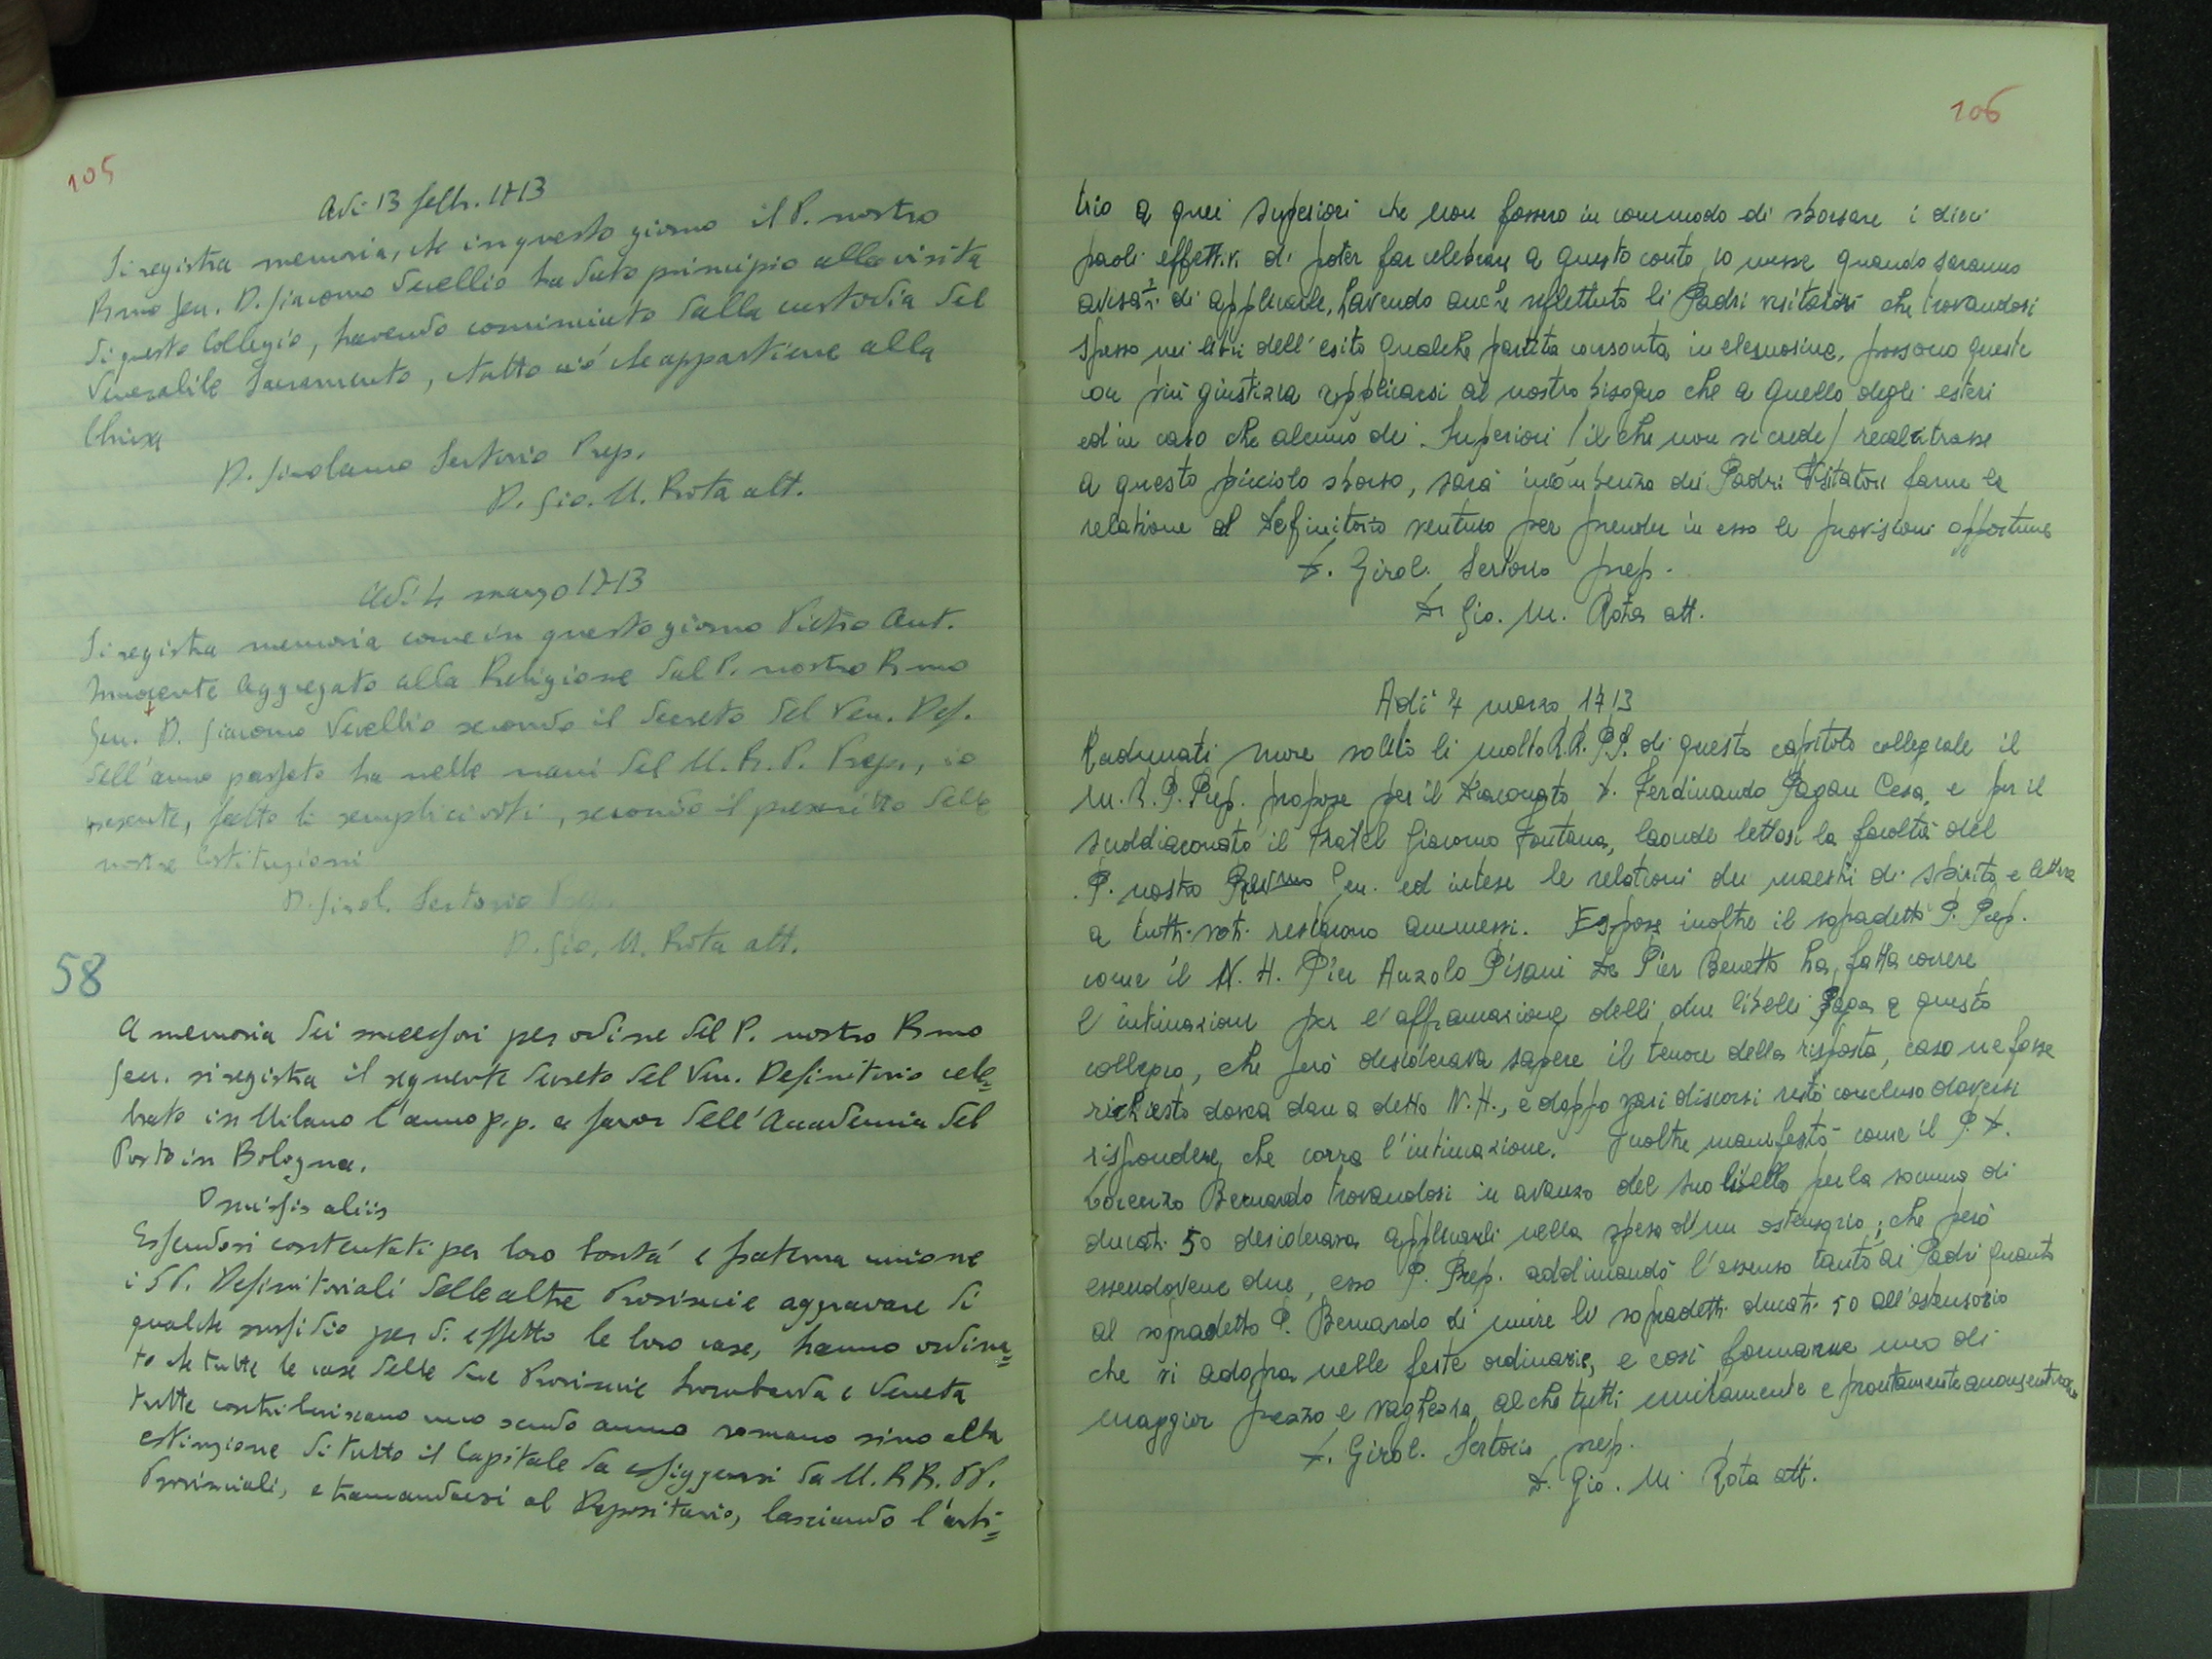 105
Adi 13 febb. 1713
Si registra memoria, che in questo giorno il P. nostro
Rmo Gen. D. Giacomo Vecellio ha dato principio alla visita
di questo Collegio, havendo cominciato dalla custodia del
Venerabile Sacramento, e tutto ciò che appartiene alla
Chiesa
D. Girolamo Sertorio Prep.
D. Gio. M. Rota att.
Adi 4 marzo 1713
Si registra memoria come in questo giorno Pietro Ant.
Innocente aggregato alla Religione dal P. nostro Rmo
Gen. D. Giacomo Vecellio secondo il decreto del Ven. Def.
dell'anno passato ha nelle mani del M. R. P. Prep., io
presente, fatto li semplici voti, secondo il prescritto delle
nostre Costituzioni
D. Girol. Sertorio Prep.
D. Gio. M. Rota att.
58
A memoria dei successori per ordine del P. nostro Rmo
Gen. si registra il seguente decreto del Ven. Definitorio cele=
brato in Milano l'anno p.p. a favor dell'Accademia del
Porto in Bologna.
Omissis aliis
Essendosi contentati per loro bontà e fraterna unione
i PP. Definitoriali delle altre Provincie aggravare di
qualche sussidio per di effetto le loro case, hanno ordina=
to che tutte le case delle due Provincie Lombarda e Veneta
tutte contribuiscano uno scudo annuo romano sino alla
estinzione di tutto il Capitale da esiggersi da M. RR. PP.
Provinciali, e tramandarsi al Depositario, lasciando l'arbi=
106
trio a quei superiori che non fossero in commodo di sborsare i dieci
paoli effett.vi di poter far celebrare a questo conto 10 messe quando saranno
avisati di applicarle, havendo anche riflettuto li Padri visitatori che trovandosi
spesso nei libri dell'esito qualche partita consonta in elemosine, possono queste
con più giustizia applicarsi al nostro bisogno che a quello degli esteri
ed in caso che alcuno dei Superiori (il che non si crede) recalcitrasse
a questo picciolo sborso, sarà incombenza dei Padri Visitatori farne la
relatione al Definitorio venturo per prender in esso le provisioni opportune
D. Girol. Sertorio prep.
D. Gio. M. Rota att.
Adi 7 marzo 1713
Radunati more solito li molto R.R. P.P. di questo capitolo collegiale il
M. R. P. Prep. propose per il Diaconato D. Ferdinando Pagan Cesa, e per il
suddiaconato il Fratel Giacomo Fontana, laonde lettasi la facoltà del
P. nostro Rev.mo Gen. ed intese le relationi dei maestri di spirito e lettre
a tutti voti restarono ammessi. Espose inoltre il sopadetto P. Prep.
come il N. H. Pier Anzolo Pisani De Pier Benetto ha fatta correre
l'intimazione per l'affrancazione delli due livelli paga a questo
collegio, che però desiderava sapere il tenore della risposta, caso ne fosse
richiesto dovea dare a detto N. H., e doppo vari discorsi restò concluso doversi
rispondere, che corra l'intimazione. Inoltre manifestò come il P. D.
Lorenzo Bernardo trovandosi in avanzo del suo livello per la somma di
ducati 50 desiderava applicarli nella spesa d'un ostensorio; che però
essendovene due, esso P. Prep. addimandò l'assenso tanto ai Padri quanto
al sopradetto P. Bernardo di unire li sopradetti ducati 50 all'ostensorio
che si adopra nelle feste ordinarie, e così formarne uno di
maggior prezzo e vaghezza al che tutti unitamente e prontamente acconsentirono
D. Girol. Sertorio prep.
D. Gio. M. Rota att.